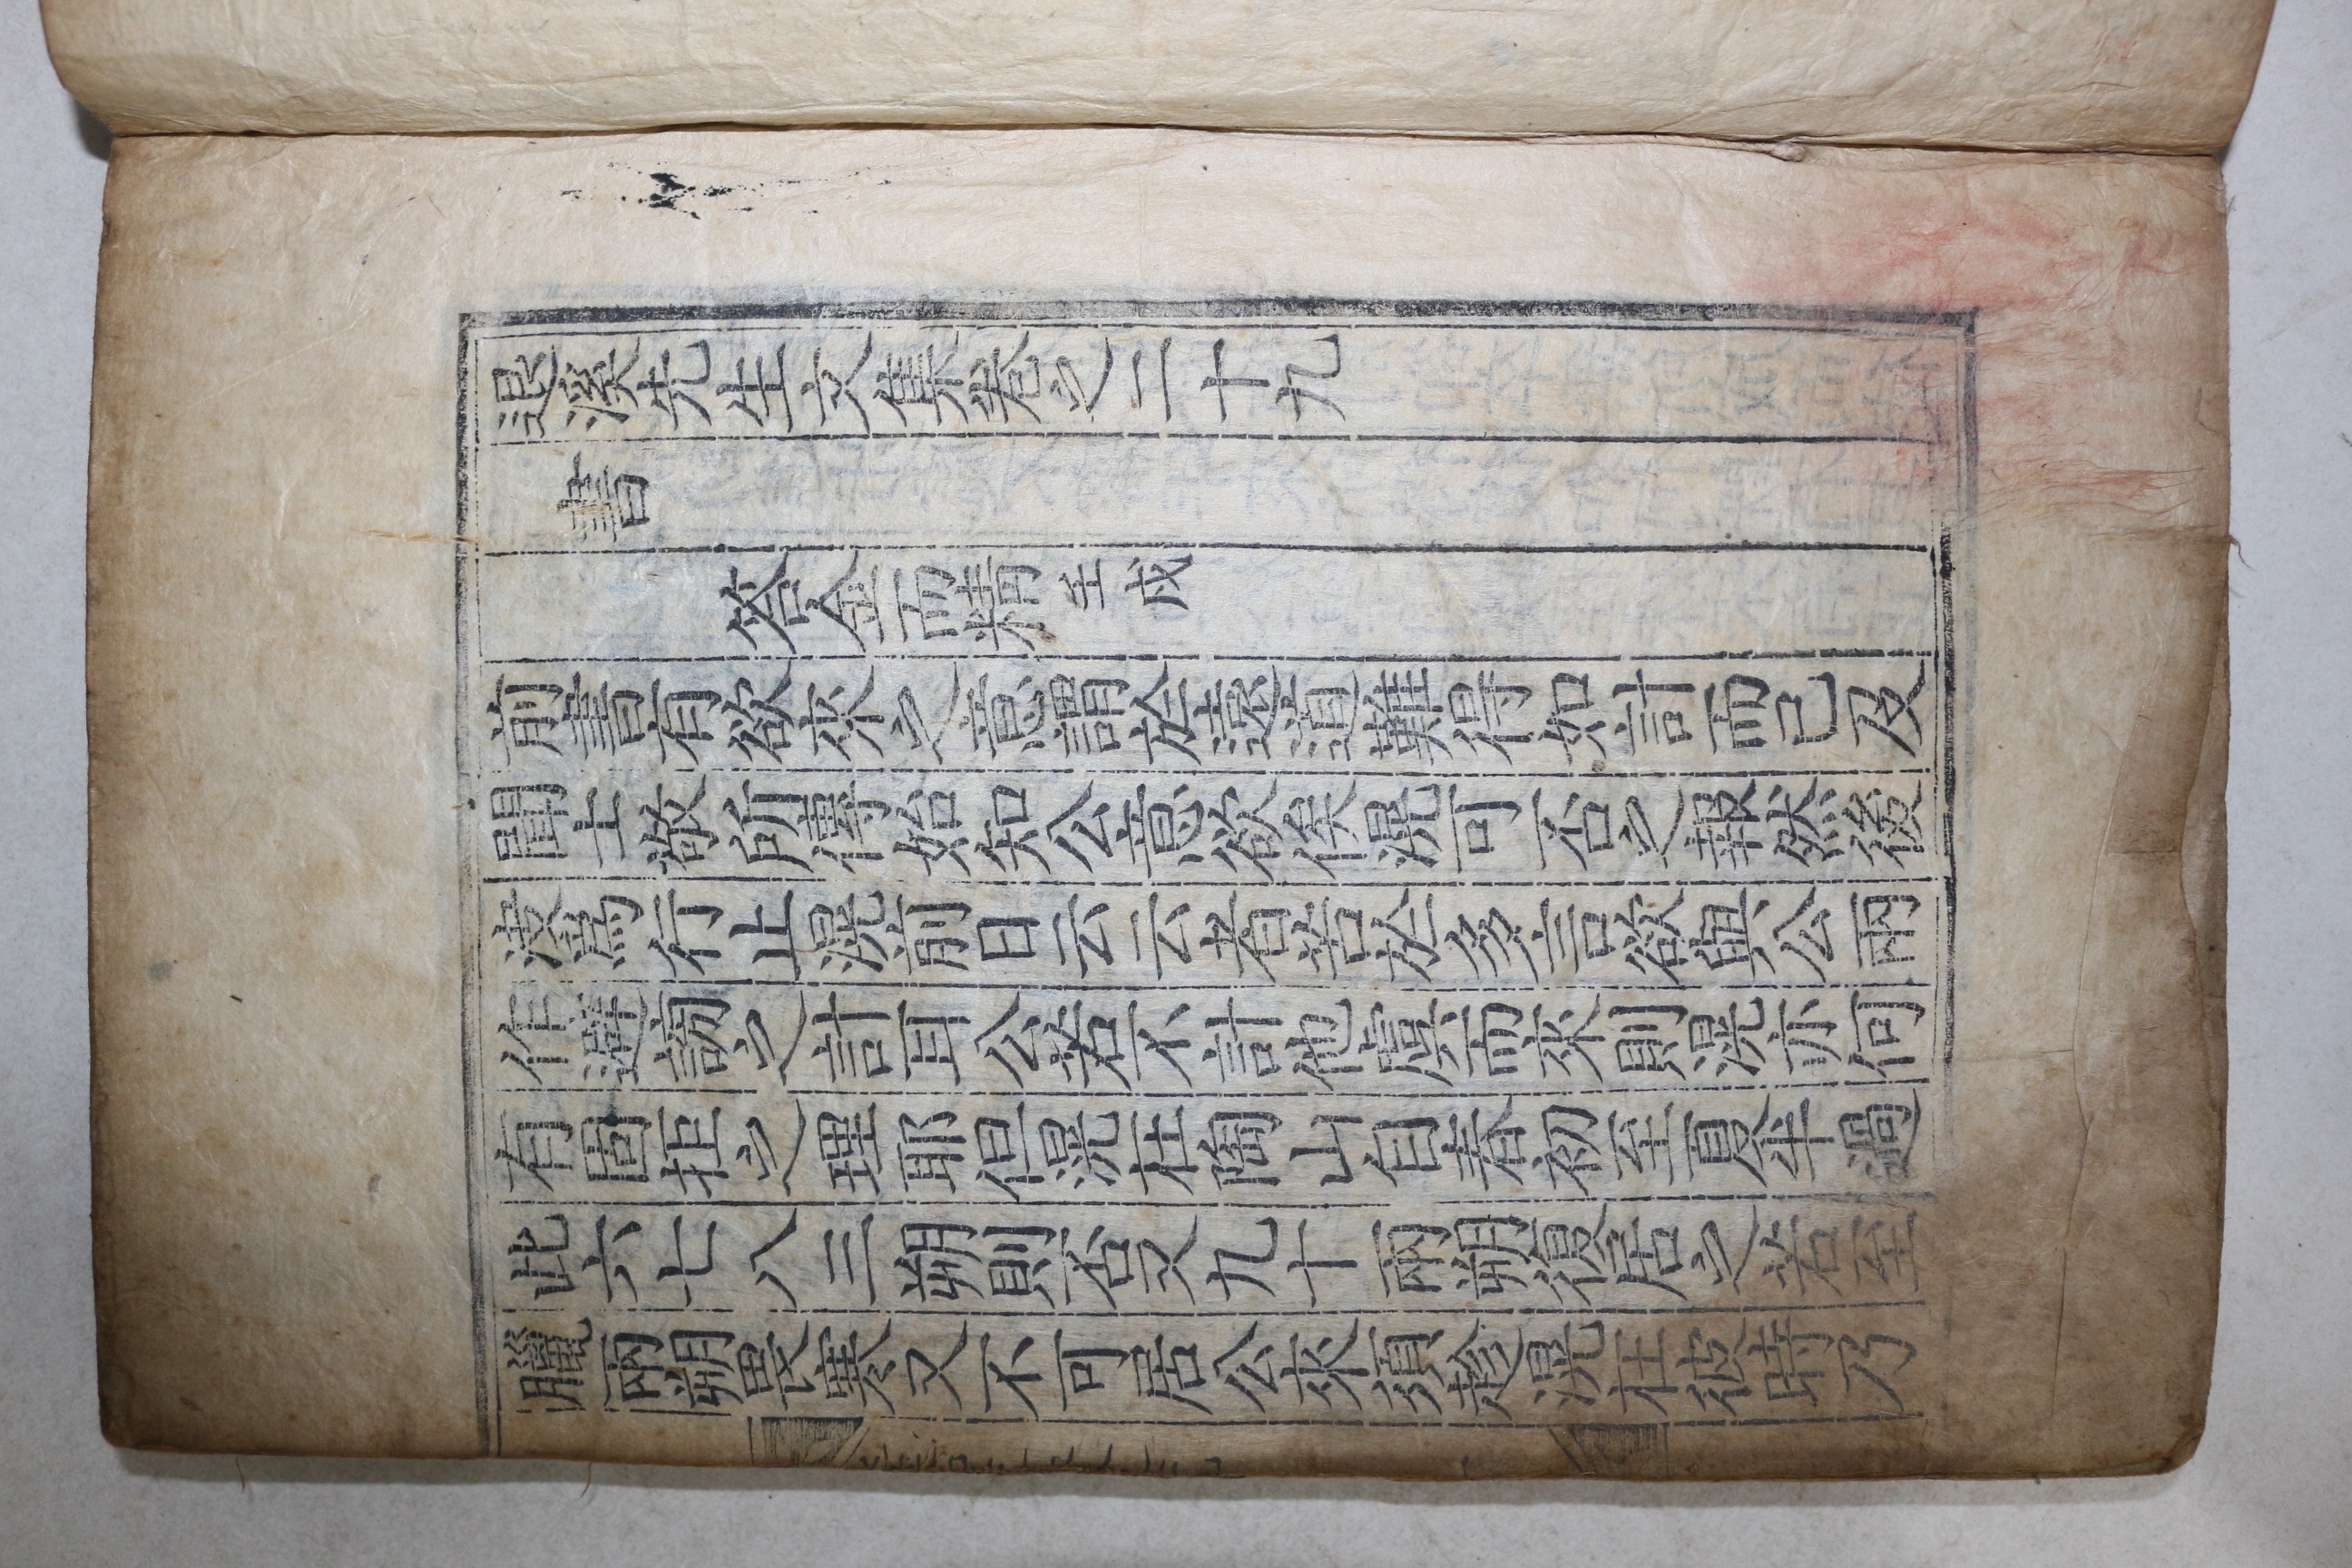 退溪先生文集卷之二十九
書
答金而精 壬戌
前書有欲來之意謂於溪得如言而已及
聞士敬所傳始知公意欲俟滉可否之報然後
決爲行止滉前日云云者若於多言公兩
作之計耳公若不計他慮而來則滉亦何
有固拒之理耶但滉在陶山自春初至夏半過
此六七八三朔則否又九十兩朔復居之若至
臘兩朔畏寒又不可居公來須趁滉在彼時乃